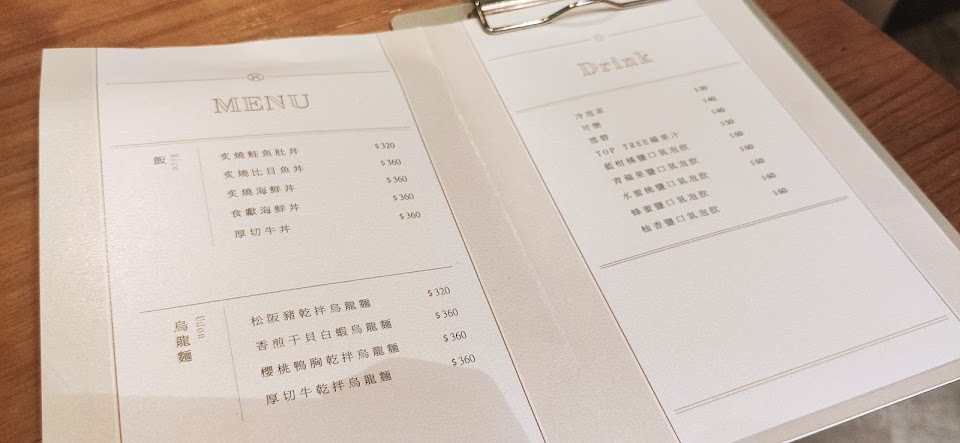 MENU
飯 Rice
炙燒鮭魚肚丼 $320
炙燒比目魚丼 $360
炙燒海鮮丼 $360
食獻海鮮丼 $360
厚切牛丼 $360
烏龍麵 Udon
松阪豬乾拌烏龍麵 $320
香煎干貝白蝦烏龍麵 $360
櫻桃鴨胸乾拌烏龍麵 $360
厚切牛乾拌烏龍麵 $360
Drink
冷泡茶 $30
可樂 $40
雪碧 $40
TOP TREE蘋果汁 $50
藍柑橘鹽口氣泡飲 $60
青蘋果鹽口氣泡飲 $60
水蜜桃鹽口氣泡飲 $60
蜂蜜鹽口氣泡飲 $60
柚香鹽口氣泡飲 $60